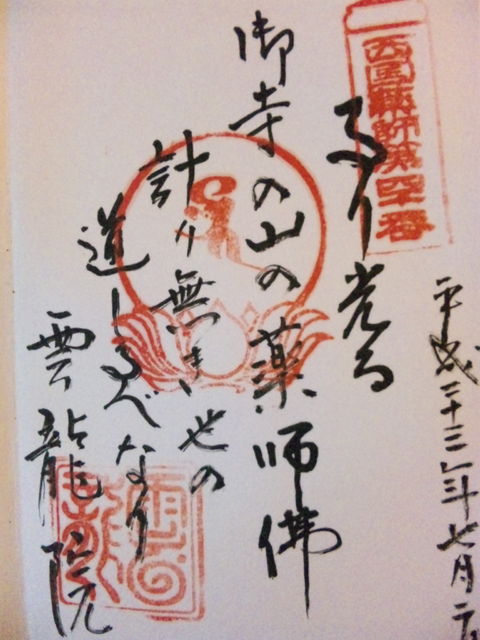 西国薬師第
平成二十三年七月
るり光る
御寺の山の薬師佛
計り無き世の
道しるべなり
雲龍院